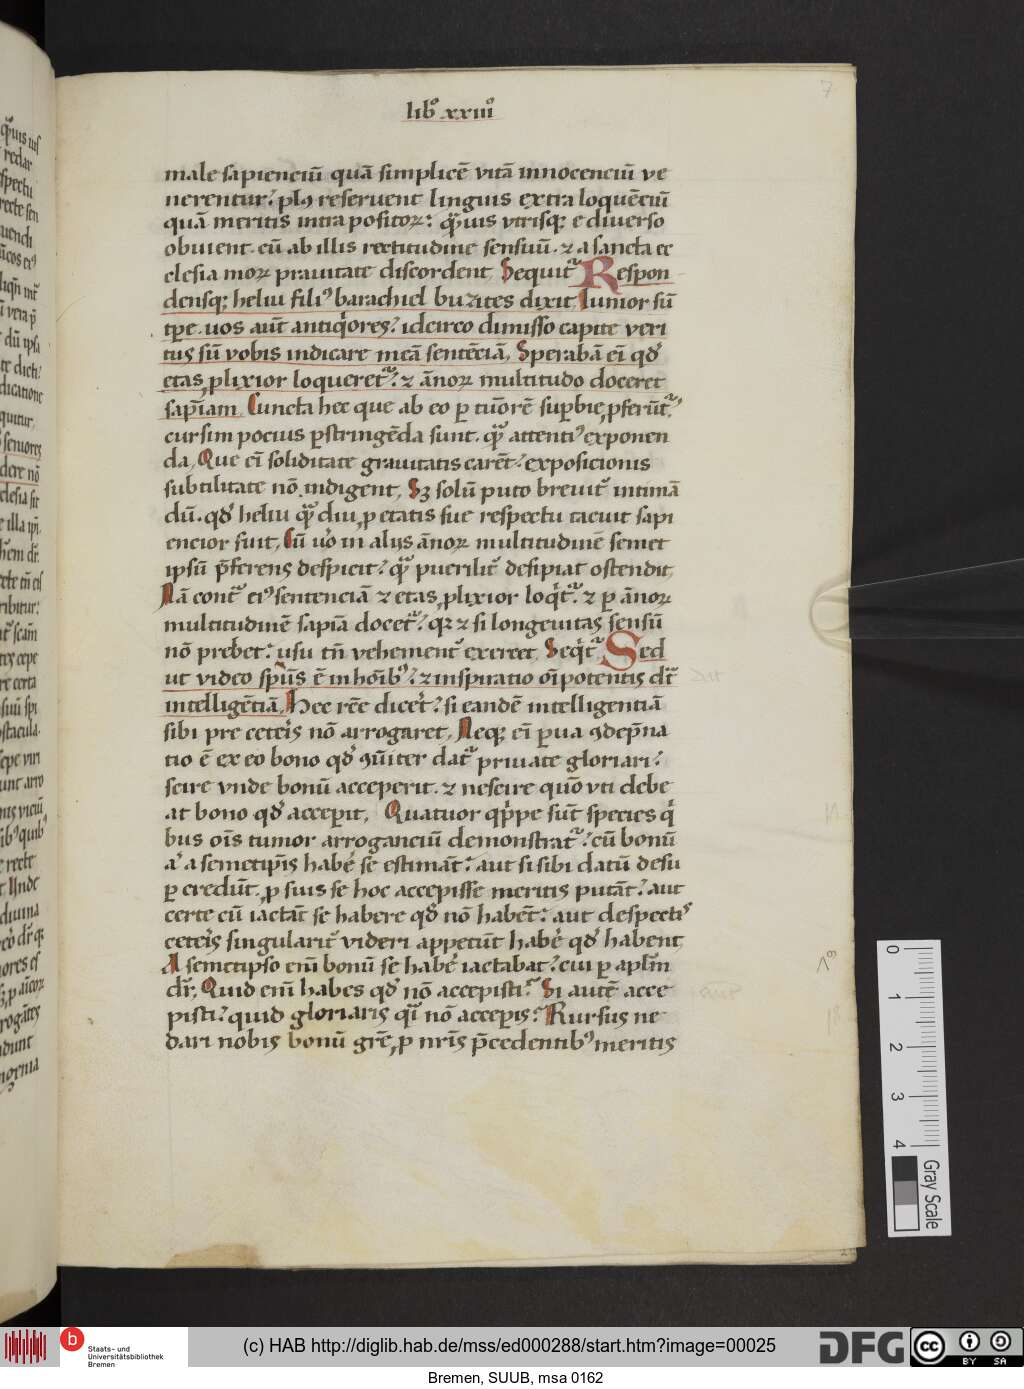 7
libꝰ xxiiiꝰ
male sapienciū quā simplicē vitā innocenciū ve
nerentur? plꝰ reseruent linguis extra loquēciū
quā meritis intra positoꝝ: qᷓuis vtrisqꝫ e diuerso
obuient. cū ab illis rectitudine sensuū. ⁊ a sancta ec
clesia moꝝ prauitate discordent, Sequitᷣ Respon
densqꝫ heliu filiꝰ barachiel buzites dixit, Iunior sū
tꝑe. uos aūt antiqͥores? idcirco dimisso capite veri
tus sū vobis indicare meā sentēciā, Sperabā eī qd̓
etas ꝓlixior loqueretᷣ? ⁊ ānoꝝ multitudo doceret
sapīam, Cuncta hec que ab eo ꝑ tūorē suꝑbie ꝓferūtᷣ?
cursim pocius ꝑstringēda sunt. qᷓ attentiꝰ exponen
da, Que eī soliditate grauitatis carēt? exposicionis
subtilitate nō indigent, Sꝫ solū puto breuitᷣ intimā
dū. qd̓ heliu qᷓ diu ꝓ etatis sue respectu tacuit sapi
encior fuit, Cū u̓o in alijs ānoꝝ multitudinē semet
ipsū p̄ferens despicit? qᷓ puerilitᷣ desipiat ostendit,
Nā contᷓ eiꝰ sentenciā ⁊ etas ꝓlixior loqͥtᷣ? ⁊ ꝑ ānoꝝ
multitudinē sapīa docetᷣ? qꝛ ⁊ si longeuitas sensū
nō prebet? usu tn̄ vehementᷣ exercet, Seqͥtᷣ Sed
ut video spūs ē in hoībꝰ? ⁊ inspiratio oīpotentis dt̄
intelligētiā, Hec rēe dicet̓? si eandē intelligentiā
sibi pre ceteīs nō arrogaret, Neqꝫ eī ꝑua ꝯdep̄na
tio ē ex eo bono qd̓ ꝯūiter datᷣ priuate gloriari?
scire vnde bonū acceperit. ⁊ nescire quōo vti debe
at bono qd̓ acceꝑit, Quatuor qͥppe sūt species qͥ
bus oīs tumor arroganciū demonstratᷣ? cū bonū
a̓ a semetip̄is habe̓ se estimāt? aut si sibi datū desu
ꝑ credūt. ꝓ suis se hoc accepisse meritis putāt? aut
certe cū iactāt se habere qd̓ nō habēt? aut despectis
ceteīs singularitᷣ videri appetūt habe̓ qd̓ habent,
A semetipso enī bonū se habe̓ iactabat? cui ꝑ aplm̄
dr̄, Quid enī habes qd̓ nō accepisti? Si autē acce
pisti? quid gloriaris qͣi nō acceꝑis? Rursus ne
dari nobis bonū grē ꝓ nrīs p̄cedentibꝰ meritis
0
1
2
3
4
Gray Scale
b
Staats- und
Universitätsbibliothek
Bremen
(c) HAB http://diglib.hab.de/mss/ed000288/start.htm?image=00025
DFG
cc BY SA
Bremen, SUUB, msa 0162